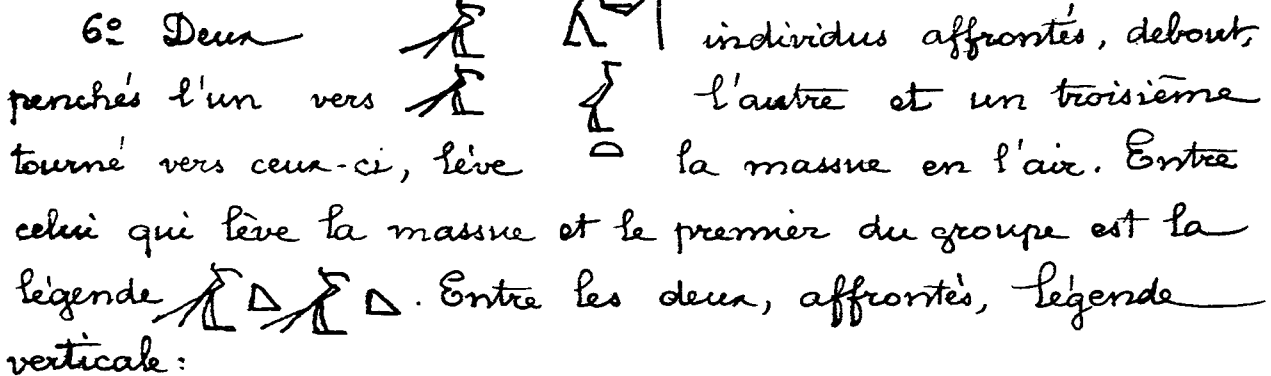 6º Deux individus affrontés, debout,
penchés l'un vers l'autre et un troisième
tourné vers ceux-ci, lève la massue en l'air. Entre
celui qui lève la massue et le premier du groupe est la
légende 𓌳𓏏𓌳𓏏. Entre les deux, affrontés, légende
verticale: